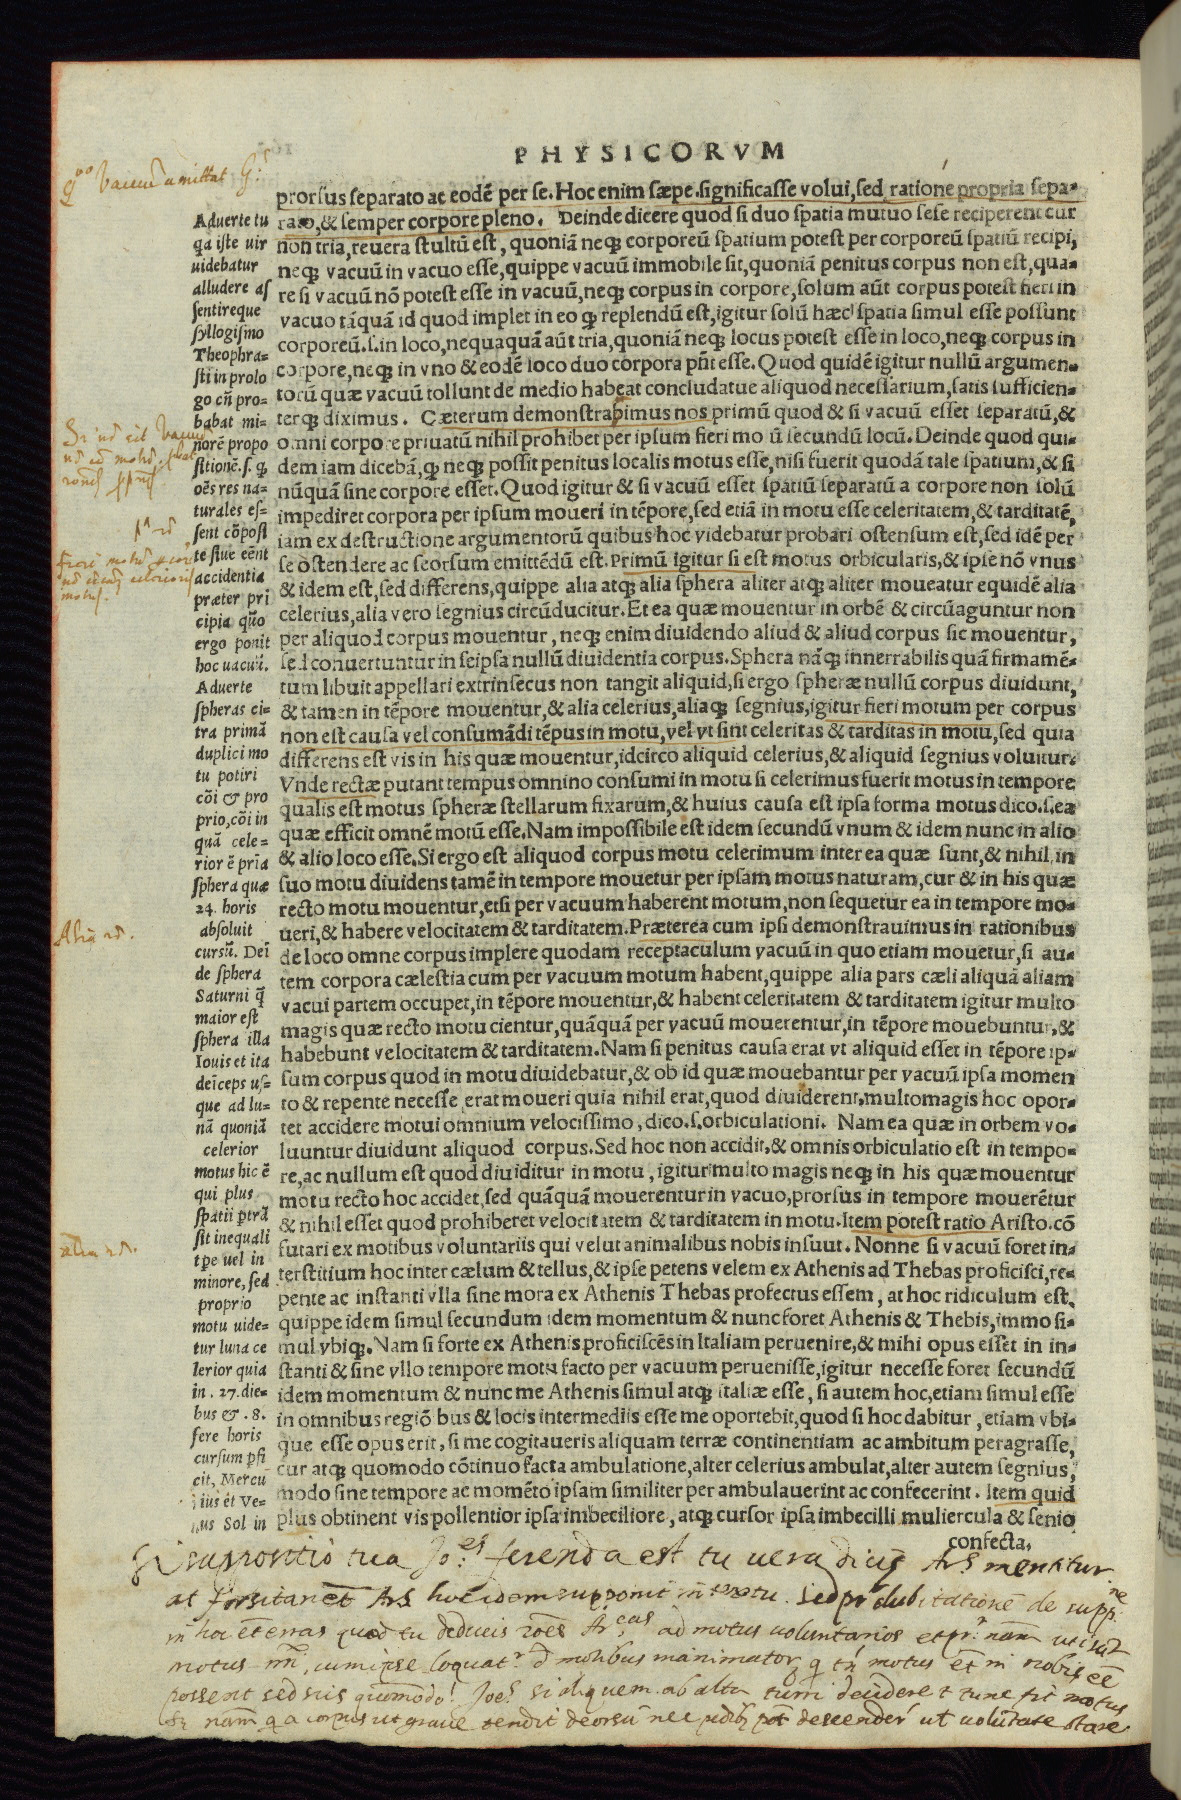 PHYSICORVM
prorsus separato ac eodē per se. Hoc enim sæpe significasse volui, sed ratione propria sepa-
rato, & semper corpore pleno. Deinde dicere quod si duo spatia mutuo sese reciperent cur
non tria, reuera stultū est, quoniā neq; corporeū spatium potest per corporeū spatiū recipi,
neq; vacuū in vacuo esse, quippe vacuū immobile sit, quoniā penitus corpus non est, qua-
re si vacuū nō potest esse in vacuū, neq; corpus in corpore, solum aūt corpus potest fieri in
vacuo tāquā id quod implet in eo q; replendū est, igitur solū hæc spatia simul esse possunt
corporeū .s. in loco, nequaquā aūt tria, quoniā neq; locus potest esse in loco, neq; corpus in
corpore, neq; in vno & eodē loco duo corpora pñt esse. Quod quidē igitur nullū argumen-
torū quæ vacuū tollunt de medio habeat concludatue aliquod necessarium, satis sufficien-
terq; diximus. Cæterum demonstrabimus nos primū quod & si vacuū esset separatū, &
omni corpore priuatū nihil prohibet per ipsum fieri mo ū secundū locū. Deinde quod qui-
dem iam dicebā, q; neq; possit penitus localis motus esse, nisi fuerit quodā tale spatium, & si
nūquā sine corpore esset. Quod igitur & si vacuū esset spatiū separatū a corpore non solū
impediret corpora per ipsum moueri in tēpore, sed etiā in motu esse celeritatē, & tarditatē,
iam ex destructione argumentorū quibus hoc videbatur probari ostensum est, sed idē per
se ostendere ac seorsum emittēdū est. Primū igitur si est motus orbicularis, & ipse nō vnus
& idem est, sed differens, quippe alia atq; alia sphera aliter atq; aliter moueatur equidē alia
celerius, alia vero segnius circūducitur. Et ea quæ mouentur in orbē & circūaguntur non
per aliquod corpus mouentur, neq; enim diuidendo aliud & aliud corpus sic mouentur,
sed conuertuntur in seipsa nullū diuidentia corpus. Sphera nāq; innerrabilis quā firmamē-
tum libuit appellari extrinsecus non tangit aliquid, si ergo spheræ nullū corpus diuidunt,
& tamen in tēpore mouentur, & alia celerius, aliaq; segnius, igitur fieri motum per corpus
non est causa vel consumādi tēpus in motu, vel vt sint celeritas & tarditas in motu, sed quia
differens est vis in his quæ mouentur, idcirco aliquid celerius, & aliquid segnius voluitur.
Vnde rectæ putant tempus omnino consumi in motu si celerimus fuerit motus in tempore
qualis est motus spheræ stellarum fixarum, & huius causa est ipsa forma motus dico .s. ea
quæ efficit omnē motū esse. Nam impossibile est idem secundū vnum & idem nunc in alio
& alio loco esse. Si ergo est aliquod corpus motu celerimum inter ea quæ sunt, & nihil in
suo motu diuidens tamē in tempore mouetur per ipsam motus naturam, cur & in his quæ
recto motu mouentur, etsi per vacuum haberent motum, non sequetur ea in tempore mo-
ueri, & habere velocitatem & tarditatem. Præterea cum ipsi demonstrauimus in rationibus
de loco omne corpus implere quodam receptaculum vacuū in quo etiam mouetur, si au-
tem corpora cælestia cum per vacuum motum habent, quippe alia pars cæli aliquā aliam
vacui partem occupet, in tēpore mouentur, & habent celeritatem & tarditatem igitur multo
magis quæ recto motu cientur, quāquā per vacuū mouerentur, in tēpore mouebuntur, &
habebunt velocitatem & tarditatem. Nam si penitus causa erat vt aliquid esset in tēpore ip-
sum corpus quod in motu diuidebatur, & ob id quæ mouebantur per vacuū ipsa momen
to & repente necesse erat moueri quia nihil erat, quod diuiderent, multomagis hoc opor-
tet accidere motui omnium velocissimo, dico .s. orbiculationi. Nam ea quæ in orbem vo-
luuntur diuidunt aliquod corpus. Sed hoc non accidit, & omnis orbiculatio est in tempo-
re, ac nullum est quod diuiditur in motu, igitur multo magis neq; in his quæ mouentur
motu recto hoc accidet, sed quāquā mouerentur in vacuo, prorsus in tempore mouerētur
& nihil esset quod prohiberet velocitatem & tarditatem in motu. Item potest ratio Aristo. cō
futari ex motibus voluntariis qui velut animalibus nobis insuut. Nonne si vacuū foret in-
terstitium hoc inter cælum & tellus, & ipse petens velem ex Athenis ad Thebas proficisci, re-
pente ac instanti vlla sine mora ex Athenis Thebas profectus essem, at hoc ridiculum est,
quippe idem simul secundum idem momentum & nunc foret Athenis & Thebis, immo si-
mul vbiq;. Nam si forte ex Athenis proficiscēs in Italiam peruenire, & mihi opus esset in in-
stanti & sine vllo tempore motu facto per vacuum peruenisse, igitur necesse foret secundū
idem momentum & nunc me Athenis simul atq; italiæ esse, si autem hoc, etiam simul esse
in omnibus regiō bus & locis intermediis esse me oportebit, quod si hoc dabitur, etiam vbi-
que esse opus erit, si me cogitaueris aliquam terræ continentiam ac ambitum peragrasse,
cur atq; quomodo cōtinuo facta ambulatione, alter celerius ambulat, alter autem segnius,
modo sine tempore ac momēto ipsam similiter per ambulauerint ac confecerint. Item quid
plus obtinent vis pollentior ipsa imbeciliore, atq; cursor ipsa imbecilli muliercula & senio
confecta,
Aduerte tu
qa iste uir
uidebatur
alludere as
sentireque
syllogismo
Theophra-
sti in prolo
go cñ pro-
babat mi-
norē propo
sitionē .s. q;
oēs res na-
turales es-
sent cōposi
te siue eēnt
accidentia
præter pri
cipia quō
ergo ponit
hoc uacuū.
Aduerte
spheras ci-
tra primā
duplici mo
tu potiri
cōi & pro
prio, cōi in
quā cele-
rior ē pria
sphera quæ
24. horis
absoluit
cursū. Dei
de sphera
Saturni q̄
maior est
sphera illa
Iouis et ita
deīceps us-
que ad lu-
nā quoniā
celerior
motus hic ē
qui plus
spatii ptrā
sit inequali
tpe uel in
minore, sed
proprio
motu uide-
tur luna ce
lerior quia
in .27. die-
bus & .8.
fere horis
cursum pfi
cit, Mercu
ius et Ve-
nus Sol in
Si suppositio tua Jo:es ferenda est tu uera dicis Ars mentitur
at forsitan et Ars hoc idem supponit in textu. sed pr dubitatione de supp:ne
in hoc et erras quod tu deducis
motus
possent sed scis quomodo! Joes si aliquem ab alta turri decidere t tunc sit motus